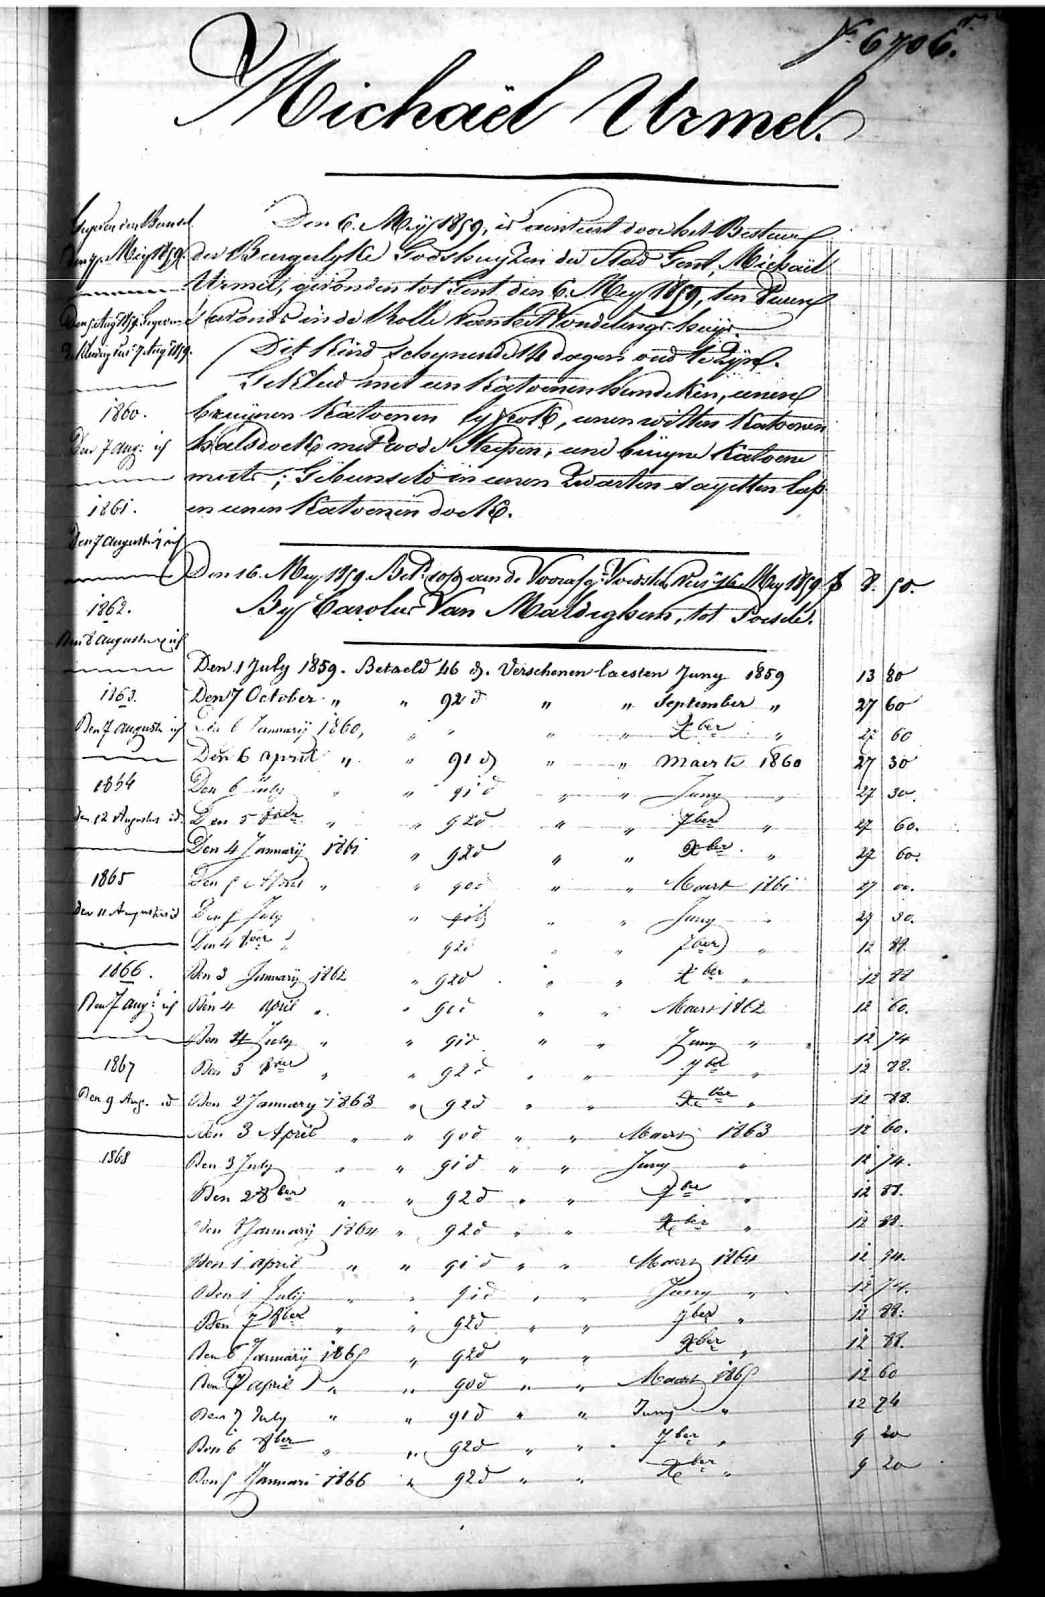 N.º 6706.
Michaël Urmel.
Den 6. Meij 1859, is aenveert door het Bestuur
der Burgerlyke Godshuyzen der Stad Gent, Michaël
Urmel, gevonden tot Gent den 6. Mey 1859, ten
s'avonds in de Rolle van het Vondelings huijs.
Dit Kind schynende 14 dagen oud te Zijn.
Gekleed met een Katoenen hemdeken, eenen
bruynen Katoenen lyfrok, eenen witten Katoenen
halsdoek met roode streepen, eene bruyne Katoene
muts; Gebunseld in eenen Zwarten sayetten lap
en eenen Katoenen doek.
Den 7. Meij 1859.
1860.
Den 7 Aug: id
1861.
Den 7 Augusty id
1862.
Den 8 Augusty id
1863.
Den 7 Augusti id
1864
Den 12 Augustus id
1865
Den 11 Augustus id
1866.
Den 7 Aug: id
1867
Den 9 Aug. id
1868
Den 16. Mey 1859. Bet. van de Voorz. Voedster 16 Mey 1859 f 8. 50.
By Carolus Van Maldeghem, tot Poesele.
Den 1 July 1859. Betaeld 46 d. Verschenen laesten Juny 1859 13 80
Den 7 October " " 92 d " " September " 27 60
Den 6 Januarij 1860, " " " " Xber " 27 60
Den 6 april " " 91 d " " Maerte 1860 27 30
Den 6 July " " 91 d " " Juny " 27 30.
Den 5 8ber " " 92 d " " 7ber " 27 60.
Den 4 Januarij 1861 " 92 d " " Xber " 27 60.
Den 5 April " " 90 d " " Maert 1861 27 00.
Den 5 July " 91 d " " Juny " 27 30.
Den 4 8ber " 92 d 7ber " 12 88.
Den 3 Januarij 1862 " 92 d " " Xber " 12 88
Den 4 april " " 90 d " " Maert 1862 12 60.
Den 4 July " " 91 d " " Juny " 12 74
Den 3 8ber " " 92 d " " 7ber " 12 88.
Den 2 January 1863 " 92 d " " Xber " 12 88.
Den 3 April " " 90 d " " Maert 1863 12 60.
Den 3 July " " 91 d " " Juny " 12 74.
Den 2 8ber " " 92 d " " 7ber " 12 88.
Den 8 Januarij 1864 " 92 d " " Xber " 12 88.
Den 1 april " " 91 d " " Maert 1864 12 74.
Den 1 July " " 91 d " " Juny " 12 74.
Den 7 8ber " " 92 d " " 7ber " 12 88.
Den 6 Januarij 1865 " 92 d " " Xber " 12 88.
Den 7 april " " 90 d " " Maert 1865 12 60
Den 7 July " " 91 d " " Juny " 12 74
Den 6 8ber " " 92 d " " 7ber " 9 20
Den 5 Januari 1866 " 92 d " " Xber " 9 20